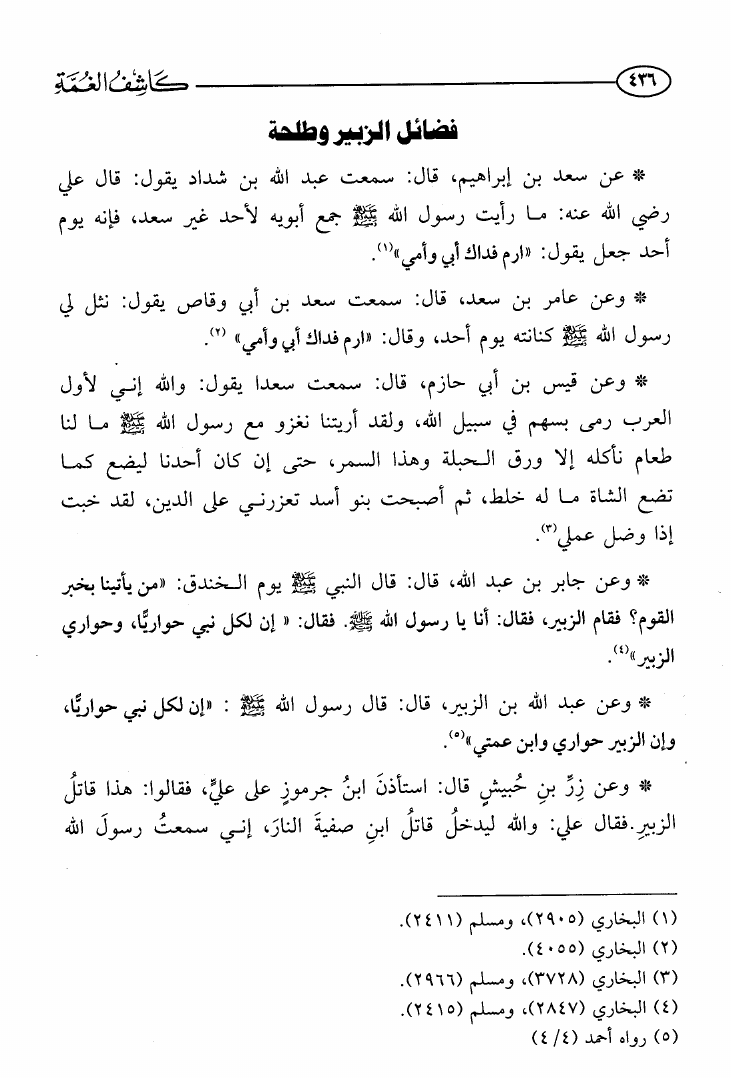 ٤٣٦ كاشف الغمة
فضائل الزبير وطلحة
* عن سعد بن إبراهيم، قال: سمعت عبد الله بن شداد يقول: قال علي
رضي الله عنه: ما رأيت رسول الله ﷺ جمع أبويه لأحد غير سعد، فإنه يوم
أحد جعل يقول: «ارم فداك أبي وأمي»(١).
* وعن عامر بن سعد، قال: سمعت سعد بن أبي وقاص يقول: نثل لي
رسول الله ﷺ كنانته يوم أحد، وقال: «ارم فداك أبي وأمي» (٢).
* وعن قيس بن أبي حازم، قال: سمعت سعدا يقول: والله إني لأول
العرب رمى بسهم في سبيل الله، ولقد أريتنا نغزو مع رسول الله ﷺ ما لنا
طعام نأكله إلا ورق الحبلة وهذا السمر، حتى إن كان أحدنا ليضع كما
تضع الشاة ما له خلط، ثم أصبحت بنو أسد تعزرني على الدين، لقد خبت
إذا وضل عملي(٣).
* وعن جابر بن عبد الله، قال: قال النبي ﷺ يوم الخندق: «من يأتينا بخبر
القوم؟ فقام الزبير، فقال: أنا يا رسول الله ﷺ. فقال: « إن لكل نبي حواريًّا، وحواري
الزبير»(٤).
* وعن عبد الله بن الزبير، قال: قال رسول الله ﷺ : «إن لكل نبي حواريًّا،
وإن الزبير حواري وابن عمتي»(٥).
* وعن زِرِّ بنِ حُبيشٍ قال: استأذنَ ابنُ جرموزٍ على عليٍّ، فقالوا: هذا قاتلُ
الزبيرِ.فقال علي: والله ليدخلُ قاتلُ ابنِ صفيةَ النارَ، إني سمعتُ رسولَ الله
(١) البخاري (٢٩٠٥)، ومسلم (٢٤١١).
(٢) البخاري (٤٠٥٥).
(٣) البخاري (٣٧٢٨)، ومسلم (٢٩٦٦).
(٤) البخاري (٢٨٤٧)، ومسلم (٢٤١٥).
(٥) رواه أحمد (٤/ ٤)